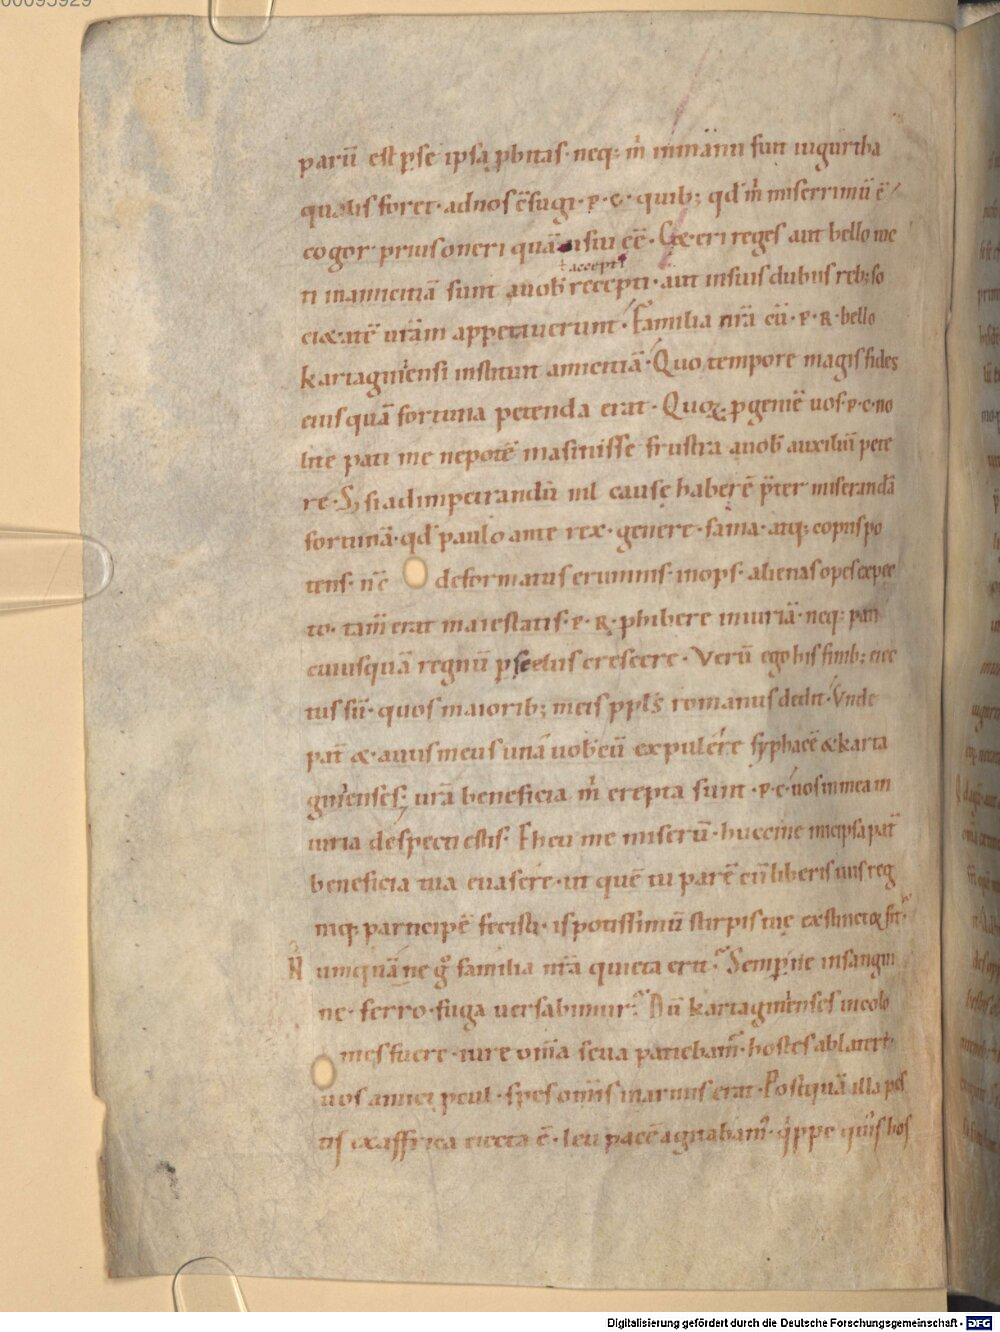 00095929
parū est p se ipsa pbitas· neq; m̄ in manu fuit iugurtha
qualis foret· ad uos c̄fugi· p· c· quib; qd̄ m̄ miserrimū ē
cogor prius oneri quā usui ēē· Ceteri reges aut bello uic
ł accepti
ti in amicitiā sunt a uob̄ recepti· aut in suis dubiis reb; so
cietatē urām appetiuerunt· Familia nrā cū· p· R· bello
kartaginensi instituit amicitiā· Quo tempore magis fides
eius quā fortuna petenda erat· Quoꝝ pgeniē uos· p· c· no
lite pati me nepotē masinisse frustra a uob̄ auxiliū pete
re· S; si ad impetrandū nil cause haberē p̄ter miserandā
fortunā· qd̄ paulo ante rex· genere· fama· atq; copiis po
tens· n̄c deformatus erumnis· inops· alienas opes expec
to· tam̄ erat maiestatis· p· R· phibere iniuriā· neq; pati
cuiusquā regnū p scelus crescere· Verū ego his finib; eiec
tus sū· quos maiorib; meis ppls romanus dedit· Vnde
pat̄ & auus meus una uob̄cū expulere syphacē & karta
ginenses; ura beneficia m̄ erepta sunt· p· c· uos in mea in
iuria despecti estis· Eheu me miserū· huccine micipsa pat̄
beneficia tua euasere· ut quē tu parē cū liberis tuis reg
niq; participē fecisti· is potissimū stirpis tue extinctor sit·
N umquā ne g° familia nrā quieta erit· Semp ne in sangui
ne· ferro· fuga uersabimur· Dū kartaginenses incolo
mes fuere· iure om̄ia seua patiebam̄· hostes ab latere·
uos amici pcul· spes om̄is in armis erat· Postquā illa pes
tis ex affrica eiecta ē· leti pacē agitabam̄· q̄ppe quis hos
Digitalisierung gefördert durch die Deutsche Forschungsgemeinschaft - DFG